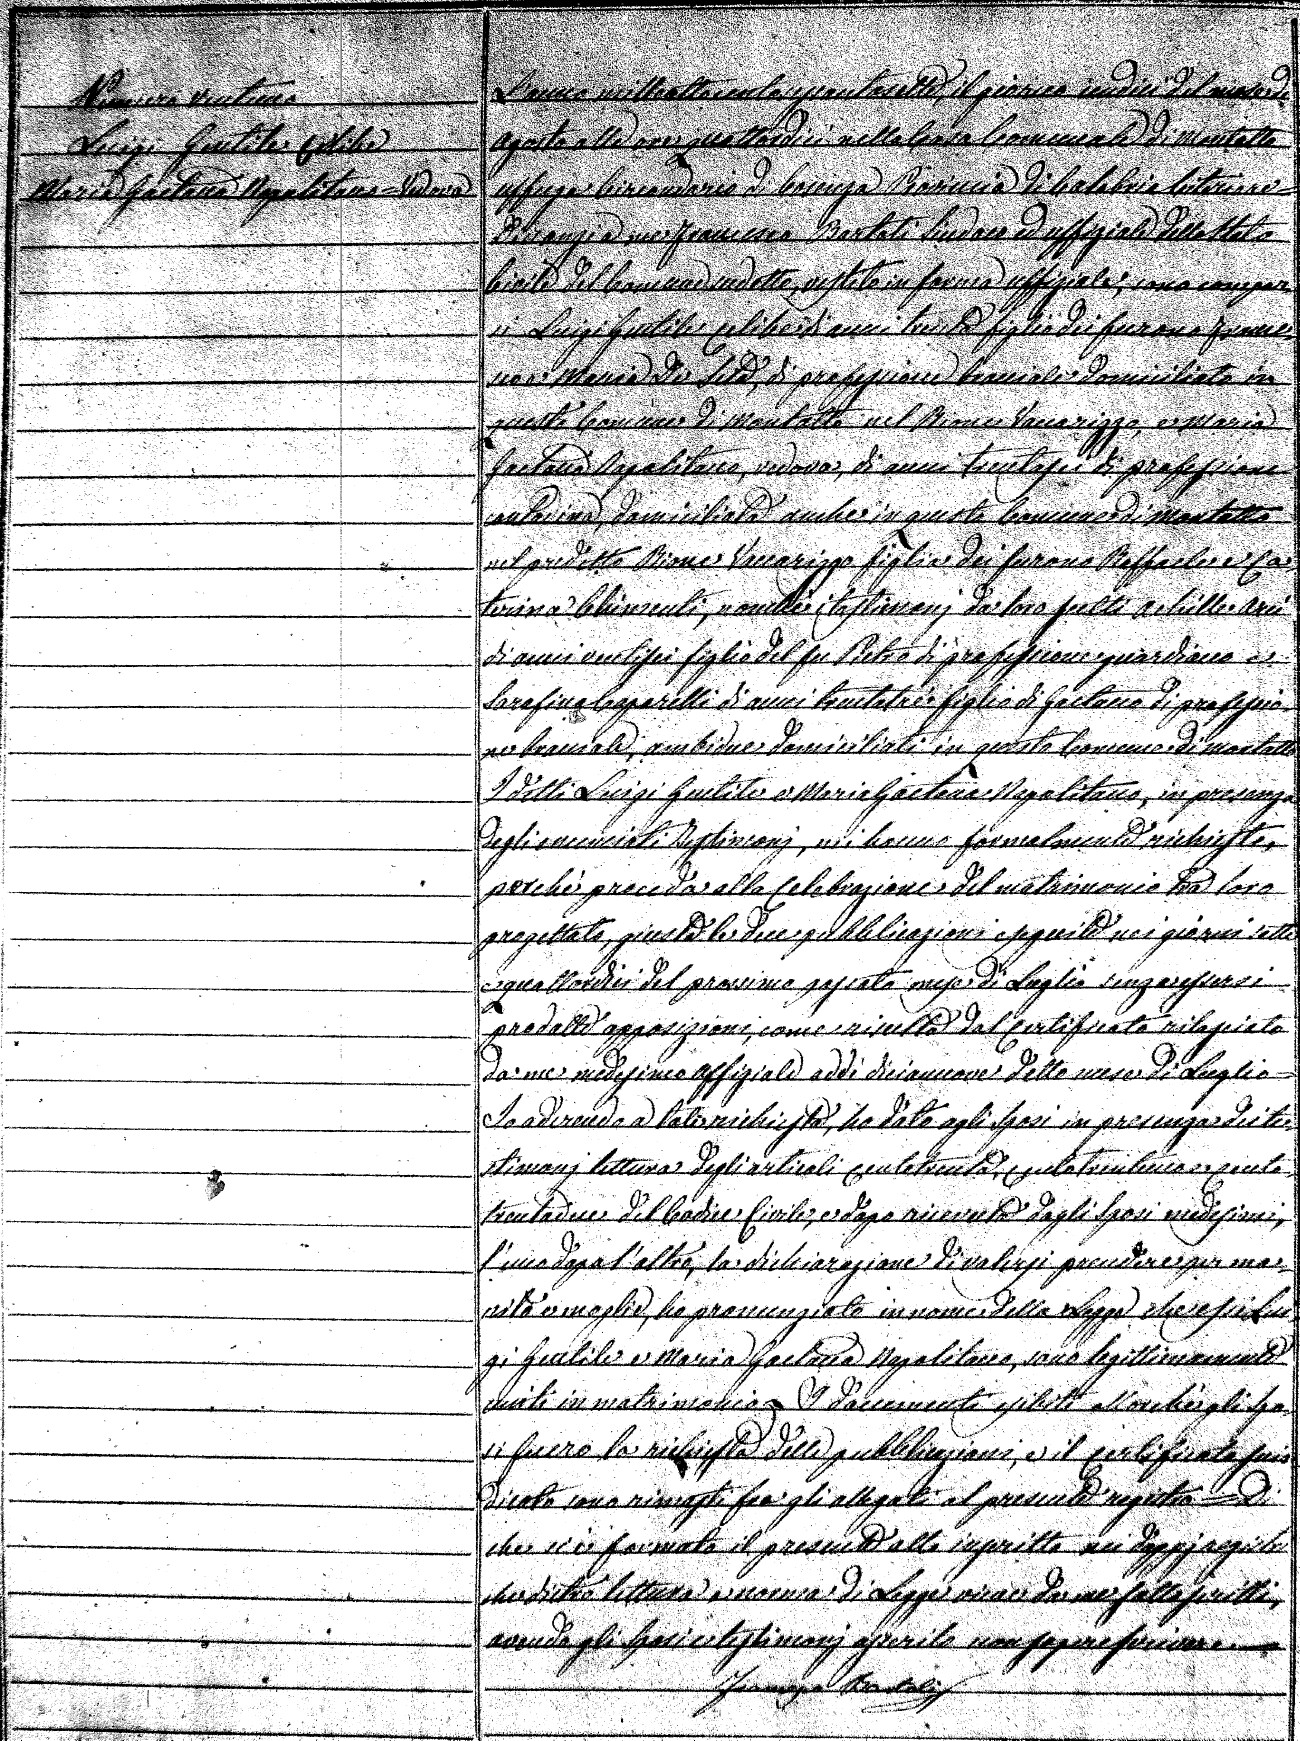 Numero ventuno
Luigi Gentile Celibe
Maria Gaetana Napolitano = Vedova
L'anno milleottocento il giorno undici del mese di
Agosto alle ore quattordici nella Casa Comunale di Montalto
Uffugo Circondario di Cosenza Provincia di Calabria Citeriore
Dinanzi a me Francesco Bartoli Sindaco ed uffiziale dello Stato
Civile del Comune sudetto, vestito in forma uffiziale, sono compar-
si Luigi Gentile celibe di anni trenta figlio dei furono France-
sco e Maria De Seta, di professione bracciale domiciliato in
questo Comune di Montalto nel Rione Vaccarizzo, e Maria
Gaetana Napolitano, vedova, di anni trentasei di professione
contadina, domiciliata anche in questo Comune di Montalto
nel predetto Rione Vaccarizzo figlia dei furono Raffaele e Ca-
terina Chimenti, nonché i testimonj da loro scelti Achille
di anni ventisei figlio del fu Pietro di professione guardiano e
Serafino Caparelli di anni trentatré figlio di Gaetano di professio-
ne bracciale, ambidue domiciliati in questo Comune di Montalto
I detti Luigi Gentile e Maria Gaetana Napolitano, in presenza
degli enunciati Testimonj, mi hanno formalmente richiesto,
perché proceda alla Celebrazione del matrimonio tra loro
progettato, giusta le due pubblicazioni eseguite nei giorni sette
e quattordici del prossimo passato mese di Luglio senza essersi
prodotte opposizioni, come risulta dal Certificato rilasciato
da me medesimo Uffiziale addì diciannove detto mese di Luglio =
Io aderendo a tale richiesta, ho dato agli Sposi in presenza dei te-
stimonj lettura degli articoli centotrenta, centotrentuno e cento
trentadue del Codice Civile, e dopo ricevuta dagli Sposi medesimi,
l'uno dopo l'altro, la dichiarazione di volersi prendere per ma-
rito e moglie, ho pronunziato in nome della Legge che essi Lui-
gi Gentile e Maria Gaetana Napolitano, sono legittimamente
uniti in matrimonio. I documenti esibiti allorché gli Spo-
si fecero la richiesta delle pubblicazioni, e il certificato suin-
dicato sono rimasti fra gli allegati al presente registro = Di
che si è formato il presente atto inscritto nei doppj registri
che dietro lettura a norma di Legge viene da me sottoscritto,
avendo gli Sposi e testimonj asserito non sapere scrivere
Francesco Bartoli